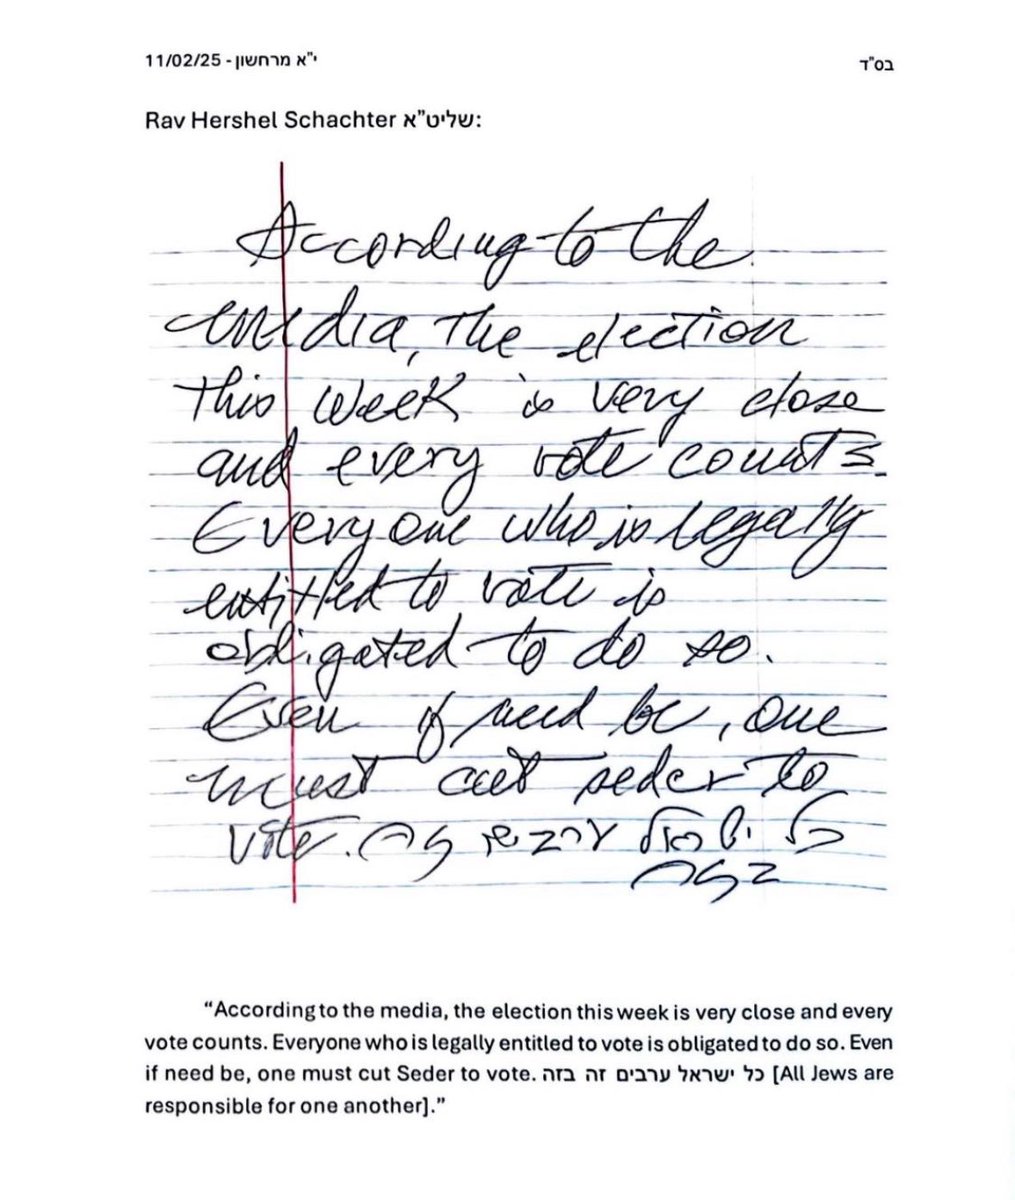 י"א מרחשון - 11/02/25
בס"ד
Rav Hershel Schachter שליט"א:
According to the
media, the election
this week is very close
and every vote counts.
Everyone who is legally
entitled to vote is
obligated to do so.
Even if need be, one
must cut seder to
vote. כל ישראל ערבים זה
בזה
"According to the media, the election this week is very close and every
vote counts. Everyone who is legally entitled to vote is obligated to do so. Even
if need be, one must cut Seder to vote. כל ישראל ערבים זה בזה [All Jews are
responsible for one another]."